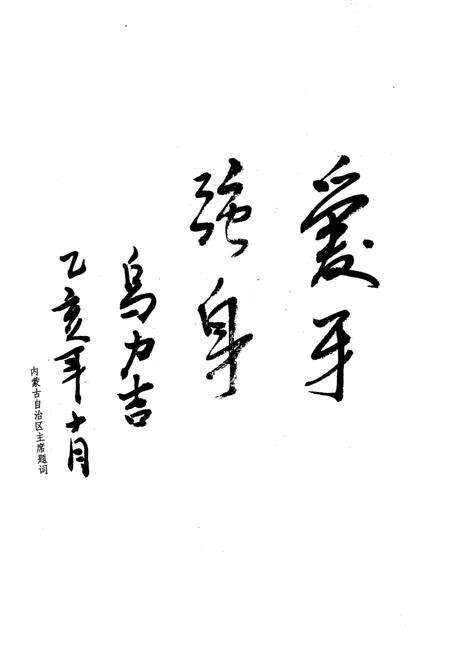 愛牙
强身
乌力吉
乙亥年十月
内蒙古自治区主席题词